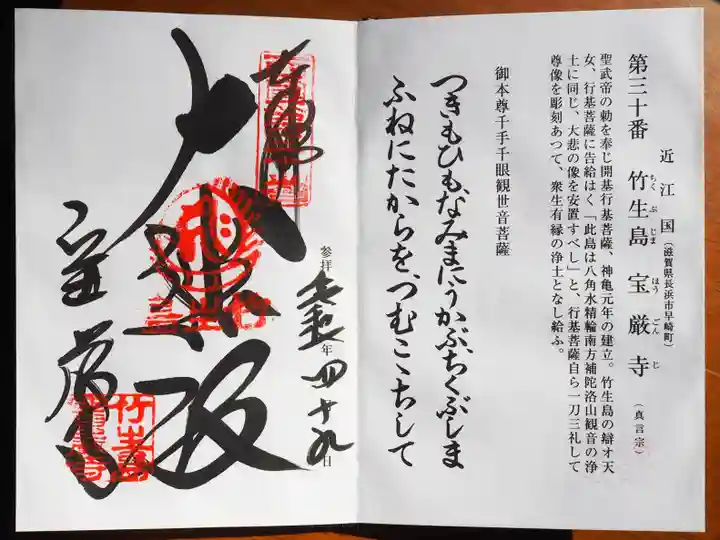 近江国（滋賀県長浜市早崎町）
第三十番 竹生島 宝厳寺（真言宗）
ちくぶじま ほうごんじ
聖武帝の勅を奉じ開基行基菩薩、神亀元年の建立。竹生島の辯才天
女、行基菩薩に告給はく「此島は八角水精輪南方補陀洛山観音の浄
土に同じ、大悲の像を安置すべし」と、行基菩薩自ら一刀三礼して
尊像を彫刻あつて、衆生有縁の浄土となし給ふ。
御本尊千手千眼観世音菩薩
つきもひも、なみまにうかぶ、ちくぶしま
ふねにたからを、つむこゝちして
奉拝
参拝 年 四 十九 日
大悲殿
宝厳寺
竹生島